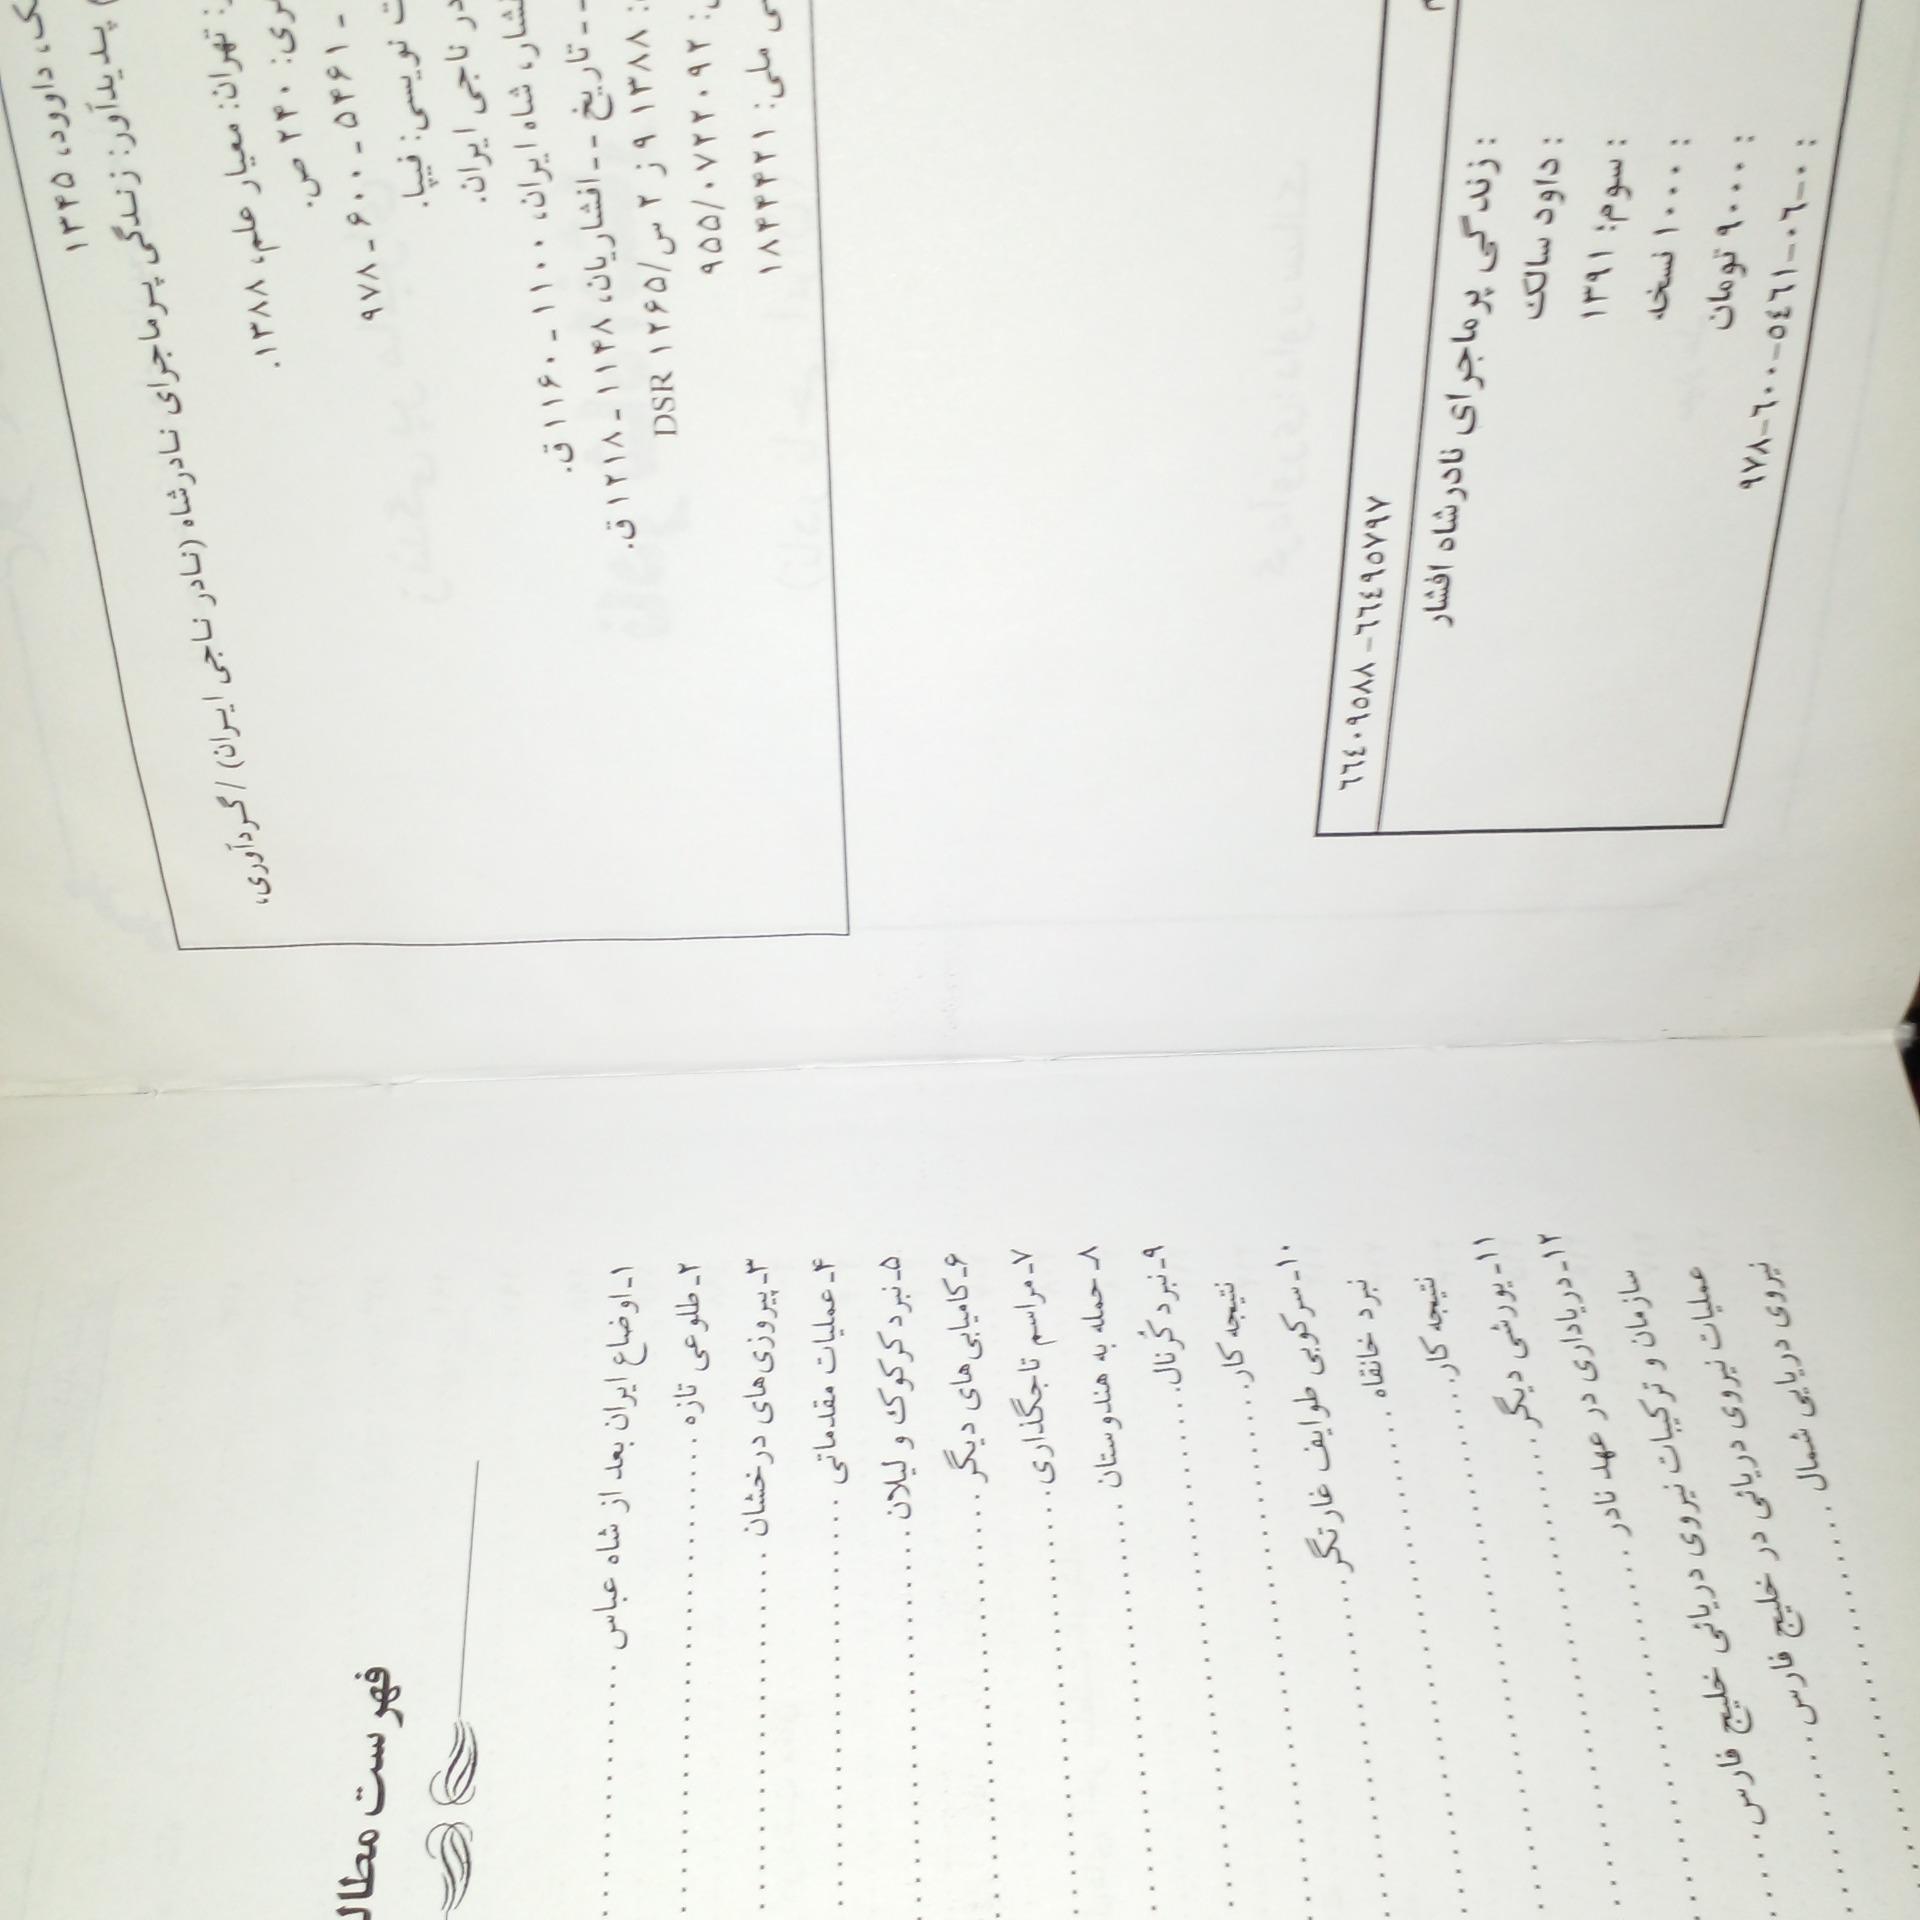 داوود، ۱۳۴۵
پدیدآور: زندگی پرماجرای نادرشاه (نادر ناجی ایران) / گردآوری،
: تهران: معیار علم، ۱۳۸۸.
۲۴۰ ص.
۹۷۸ - ۶۰۰ - ۵۴۶۱ -
نویسی: فیپا.
ناجی ایران.
شاه ایران، ۱۱۰۰ - ۱۱۶۰ ق.
-- تاریخ -- افشاریان، ۱۱۴۸ - ۱۲۱۸ ق.
: ۱۳۸۸ ۹ ز ۲ س/۱۲۶۵ DSR
: ۹۵۵/۰۷۲۲۰۹۲
ملی: ۱۸۴۴۴۲۱
۶۶۴۰۹۵۸۸ - ۶۶۴۹۵۷۹۷
: زندگی پرماجرای نادرشاه افشار
: داود سالک
: سوم؛ ۱۳۹۱
: ۱۰۰۰ نسخه
: ۹۰۰۰ تومان
: ۹۷۸-۶۰۰-۵۴۶۱-۰۶-۰
فهرست
۱ـ اوضاع ایران بعد از شاه عباس
۲ـ طلوعی تازه
۳ـ پیروزی‌های درخشان
۴ـ عملیات مقدماتی
۵ـ نبرد کرکوک و لیلان
۶ـ کامیابی‌های دیگر
۷ـ مراسم تاجگذاری
۸ـ حمله به هندوستان
۹ـ نبرد کَرنال
نتیجه کار
۱۰ـ سرکوبی طوایف غارتگر
نبرد خانقاه
نتیجه کار
۱۱ـ یورشی دیگر
۱۲ـ دریاداری در عهد نادر
سازمان و ترکیبات نیروی دریائی خلیج فارس
عملیات نیروی دریائی در خلیج فارس
نیروی دریایی شمال